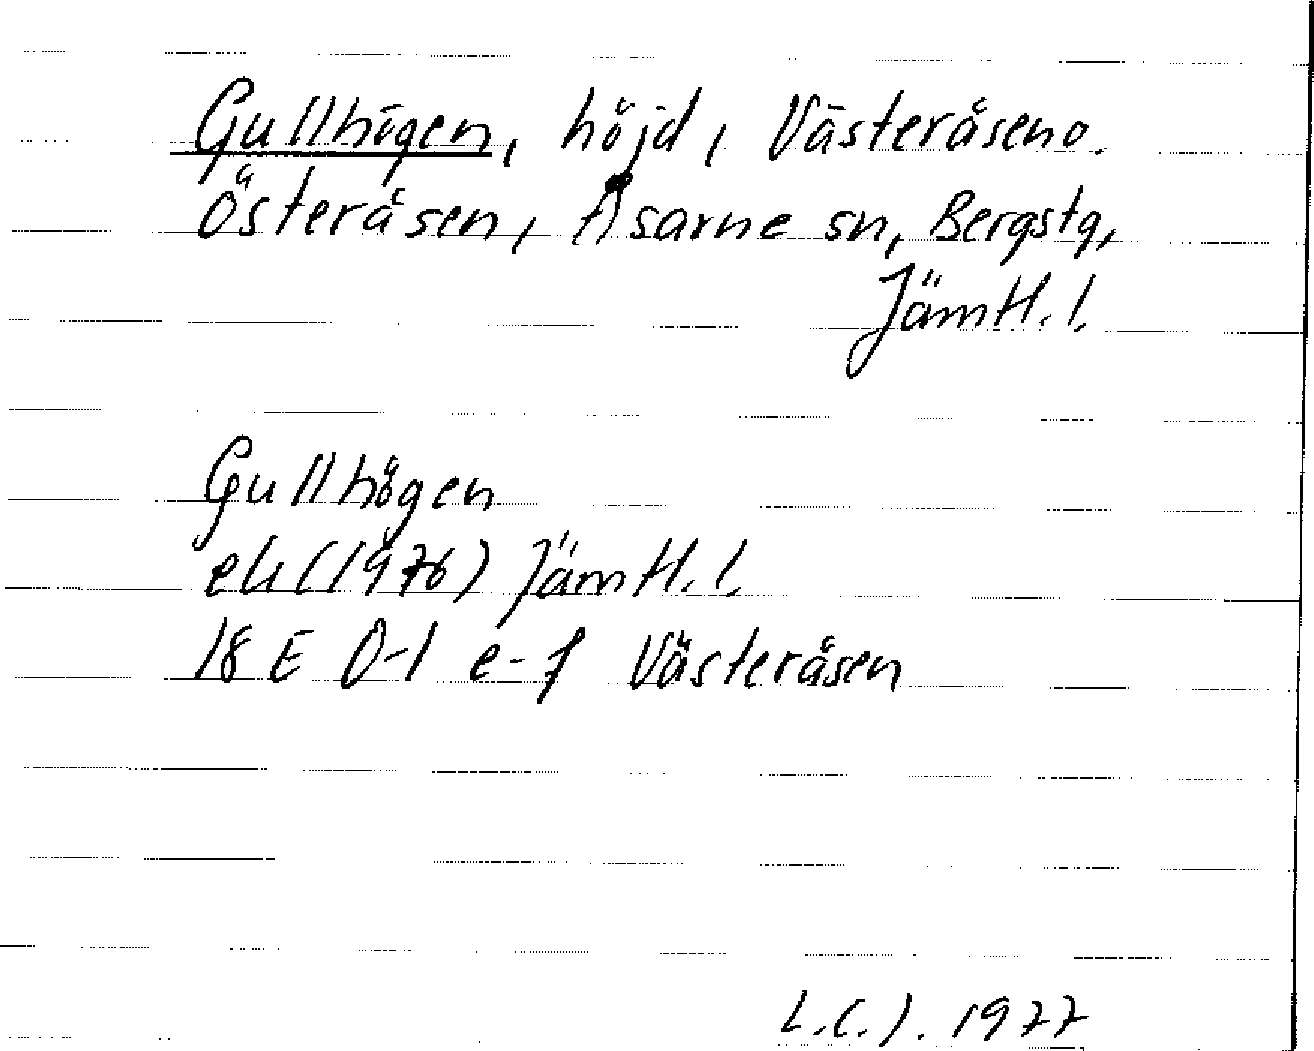 Gullhögen, höjd, Västeråsen o.
Österåsen, Åsarne sn, Bergstg,
Jämtl. l.
Gullhögen
ek (1976) Jämtl. l.
18 E 0-1 e-f Västeråsen
L.C.J. 1977